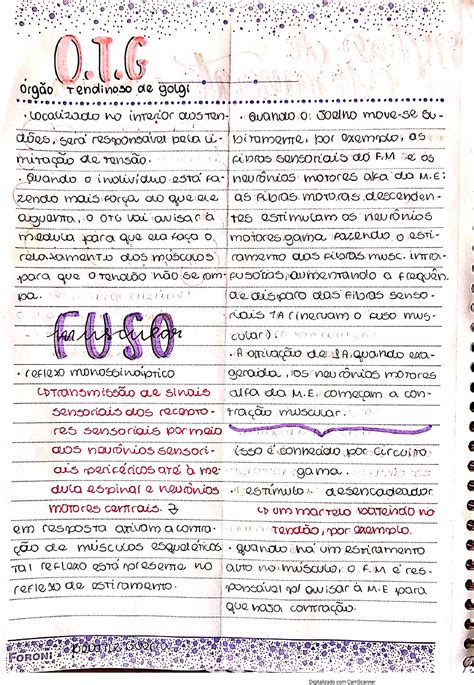 O.T.G
Órgão Tendinoso de golgi
• Localizado no interior dos ten-
dões, será responsável pela li-
mitação de tensão.
• Quando o indivíduo está fa-
zendo mais força do que ele
aguenta, o OTG vai avisar a
medula para que ela faça o
relaxamento dos músculos
para que o tendão não se om-
pa.
FUSO
muscular
• reflexo monossináptico
↳ transmissão de sinais
sensoriais dos recepto-
res sensoriais por meio
dos neurônios sensori-
ais periféricos até a me-
dula espinal e neurônios
motores centrais.
em resposta ativam a contra-
ção de músculos esqueléticos
tal reflexo está presente no
reflexo de estiramento.
• Quando o joelho move-se su-
bitamente, por exemplo, as
fibras sensoriais do F.M e os
neurônios motores alfa da M.E:
as fibras motoras descenden-
tes estimulam os neurônios
motores gama, fazendo o esti-
ramento das fibras musc. intra-
fusoriais, aumentando a frequên.
de disparo das fibras senso-
riais 1A (inervam o fuso mus-
cular).
• A ativação de 1A, quando exa-
gerada, os neurônios motores
alfa da M.E. começam a con-
tração muscular.
isso é conhecido por circuito
gama.
estímulo desencadeador
↳ um martelo batendo no
tendão, por exemplo.
• quando há um estiramento
auto no músculo, o F.M é res-
ponsável p/ avisar à M.E para
que haja contração.
FORONI
Digitalizado com CamScanner